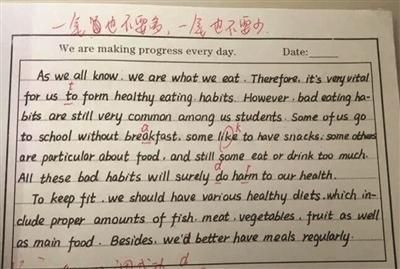 一笔也不要多，一笔也不要少.
We are making progress every day. Date:
As we all know, we are what we eat. Therefore, it's very vital
for us to form healthy eating habits. However, bad eating ha-
bits are still very common among us students. Some of us go
to school without breakfast, some like to have snacks, some others
are particular about food, and still some eat or drink too much.
All these bad habits will surely do harm to our health.
To keep fit, we should have various healthy diets, which in-
clude proper amounts of fish, meat, vegetables, fruit as well
as main food. Besides, we'd better have meals regularly.